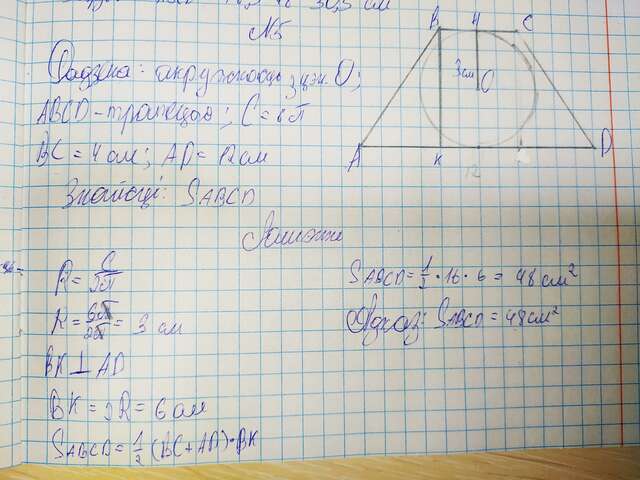 №5
Дадзена: акружнасць з цэн. O;
ABCD - трапецыя; C = 6π
BC = 4 см; AD = 12 см
Знайсці: SABCD
Рашэнне
R = C/2π
R = 6π/2π = 3 см
BK ⊥ AD
BK = 2R = 6 см
SABCD = 1/2 (BC + AD) · BK
SABCD = 1/2 · 16 · 6 = 48 см²
Адказ: SABCD = 48 см²
B H C
3 см O
A K 12 D